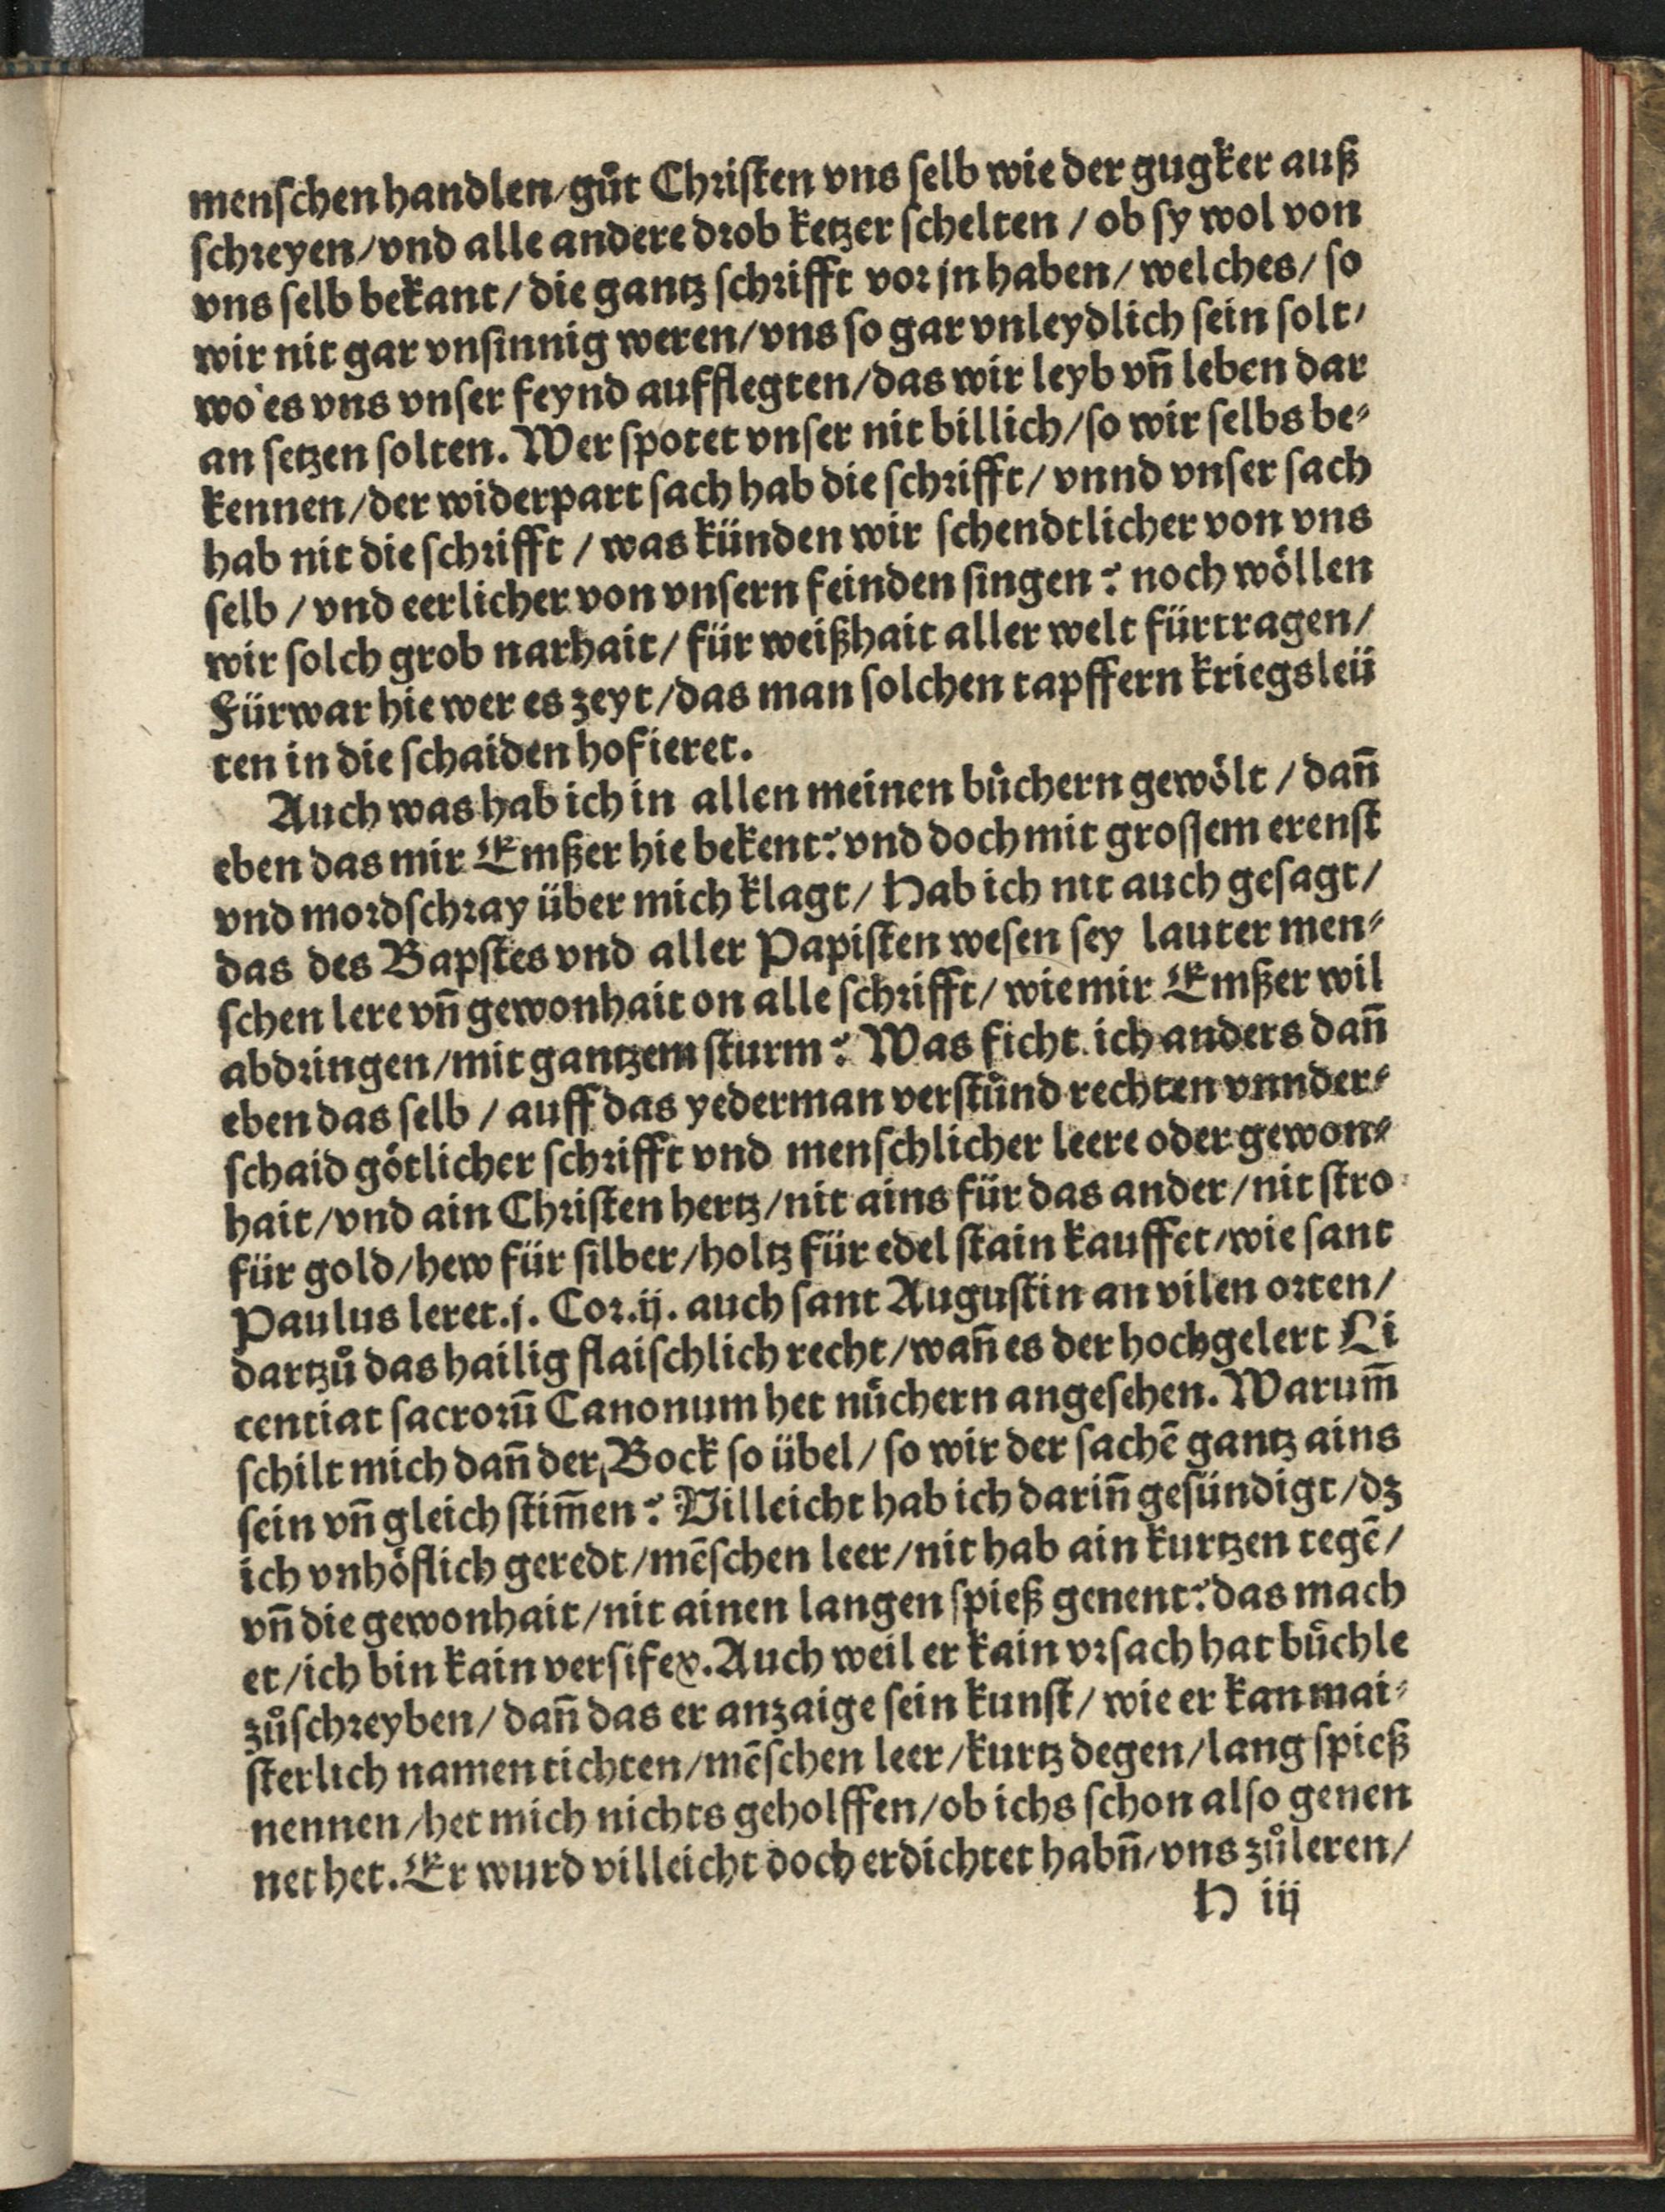 menſchen handlen/gůt Chꝛiſten vns ſelb wie der gugker auß
ſchꝛeyen/vnd alle andere dꝛob ketzer ſchelten / ob ſy wol von
vns ſelb bekant/ die gantz ſchꝛifft voꝛ jn haben/ welches/ ſo
wir nit gar vnſinnig weren/vns ſo gar vnleydlich ſein ſolt/
wo es vns vnſer feynd aufflegten/das wir leyb vñ leben dar
an ſetzen ſolten. Wer ſpotet vnſer nit billich/ſo wir ſelbs be⸗
kennen/der widerpart ſach hab die ſchꝛifft/ vnnd vnſer ſach
hab nit die ſchꝛifft / was künden wir ſchendtlicher von vns
ſelb / vnd eerlicher von vnſern feinden ſingen? noch wöllen
wir ſolch grob narhait/ für weißhait aller welt fürtragen/
Fürwar hie wer es zeyt/das man ſolchen tapffern kriegsleü
ten in die ſchaiden hofieret.
Auch was hab ich in allen meinen bůchern gewölt / dañ
eben das mir Emßer hie bekent? vnd doch mit groſſem erenſt
vnd moꝛdſchꝛay über mich klagt/ Hab ich nit auch geſagt/
das des Bapſtes vnd aller Papiſten weſen ſey lauter men⸗
ſchen lere vñ gewonhait on alle ſchꝛifft/ wie mir Emßer wil
abdꝛingen/mit gantzem ſturm? Was ficht ich anders dañ
eben das ſelb / auff das yederman verſtůnd rechten vnnder⸗
ſchaid götlicher ſchꝛifft vnd menſchlicher leere oder gewon⸗
hait/vnd ain Chꝛiſten hertz/nit ains für das ander/nit ſtro
für gold/hew für ſilber/holtz für edel ſtain kauffet/wie ſant
Paulus leret.j. Coꝛ.ij. auch ſant Auguſtin an vilen oꝛten/
dartzů das hailig flaiſchlich recht/wañ es der hochgelert Li
centiat ſacroꝛū Canonum het nůchern angeſehen. Warum̄
ſchilt mich dañ der Bock ſo übel/ ſo wir der ſachē gantz ains
ſein vñ gleich ſtim̄en? Villeicht hab ich dariñ geſündigt/dz
ich vnhöflich geredt/mēſchen leer/nit hab ain kurtzen tegē/
vñ die gewonhait/nit ainen langen ſpieß genent? das mach
et/ich bin kain verſifex. Auch weil er kain vꝛſach hat bůchle
zůſchꝛeyben/ dañ das er anzaige ſein kunſt/ wie er kan mai⸗
ſterlich namen tichten/mēſchen leer/kurtz degen/lang ſpieß
nennen/het mich nichts geholffen/ob ichs ſchon alſo genen
net het. Er wurd villeicht doch erdichtet habñ/vns zůleren/
H iij